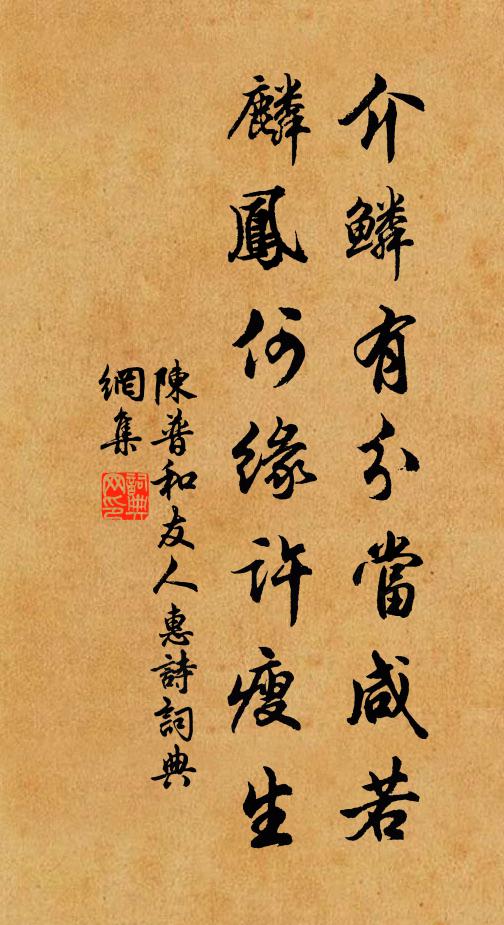 介鱗有分當咸若
麟鳳何緣許瘦生
陳普和友人惠詩詞典
網集
詞典
网印